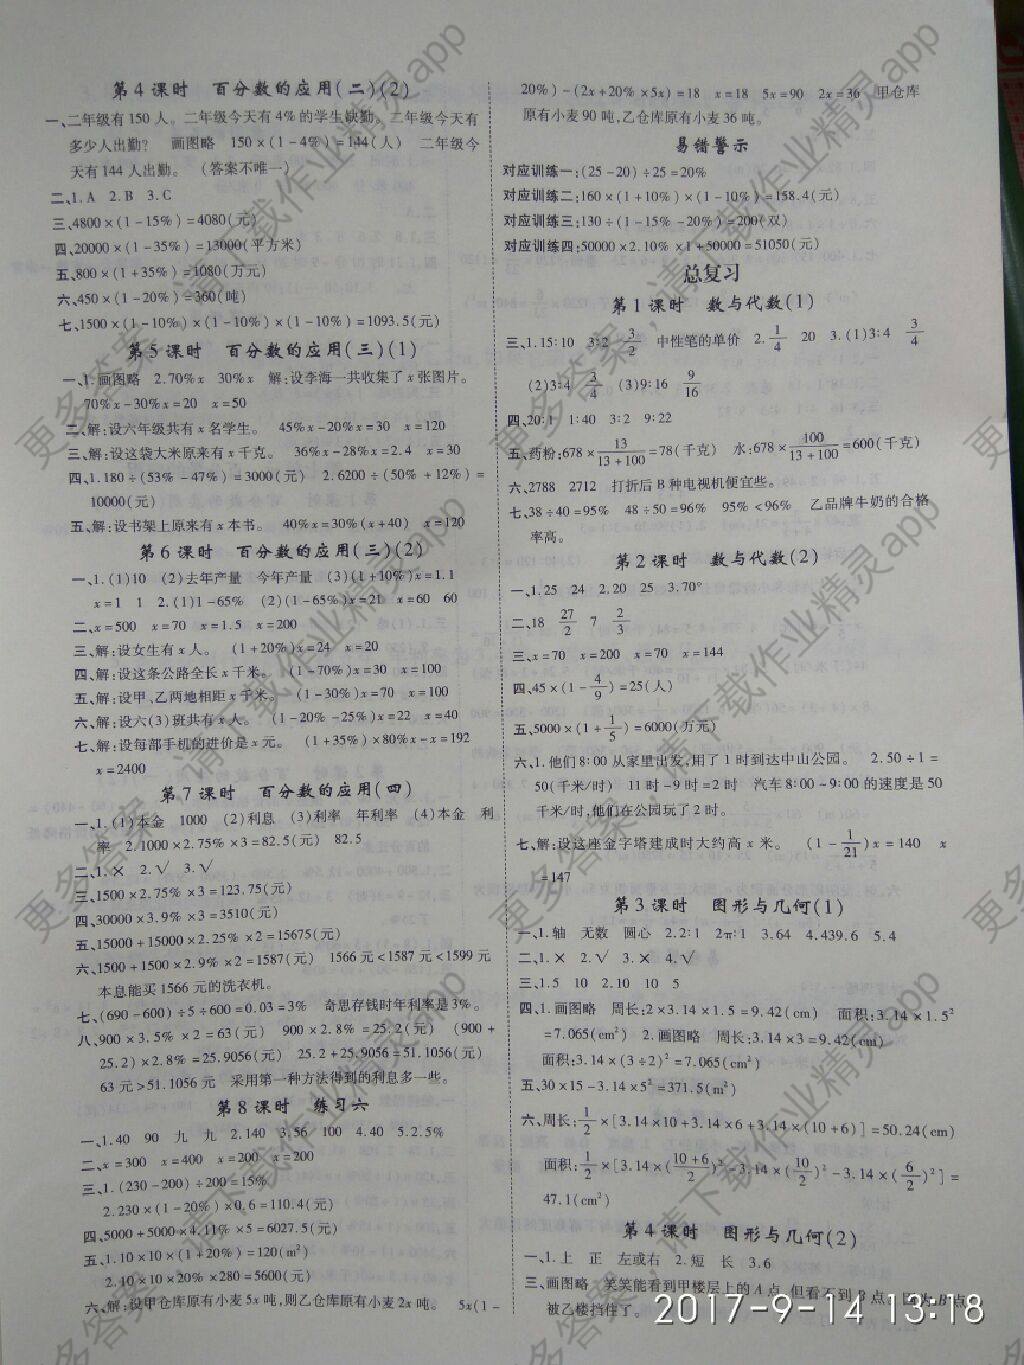 第4课时 百分数的应用(二)(2)
一、二年级有150人。二年级今天有4%的学生缺勤。二年级今天有
多少人出勤? 画图略 150×(1-4%)=144(人) 二年级今
天有144人出勤。 (答案不唯一)
二、1.A 2.B 3.C
三、4800×(1-15%)=4080(元)
四、20000×(1-35%)=13000(平方米)
五、800×(1+35%)=1080(万元)
六、450×(1-20%)=360(吨)
七、1500×(1-10%)×(1-10%)×(1-10%)=1093.5(元)
第5课时 百分数的应用(三)(1)
一、1.画图略 2.70%x 30%x 解:设李海一共收集了x张图片。
70%x-30%x=20 x=50
二、解:设六年级共有x名学生。 45%x-20%x=30 x=120
三、解:设这袋大米原来有x千克。 36%x-28%x=2.4 x=30
四、1.180÷(53%-47%)=3000(元) 2.6200÷(50%+12%)=
10000(元)
五、解:设书架上原来有x本书。 40%x=30%(x+40) x=120
第6课时 百分数的应用(三)(2)
一、1.(1)10 (2)去年产量 今年产量 (3)(1+10%)x=1.1
x=1 1 2.(1)1-65% (2)(1-65%)x=21 x=60 60
二、x=500 x=70 x=1.5 x=200
三、解:设女生有x人。 (1+20%)x=24 x=20
四、解:设这条公路全长x千米。 (1-70%)x=30 x=100
五、解:设甲、乙两地相距x千米。 (1-30%)x=70 x=100
六、解:设六(3)班共有x人。 (1-20%-25%)x=22 x=40
七、解:设每部手机的进价是x元。 (1+35%)×80%x-x=192
x=2400
第7课时 百分数的应用(四)
一、1.(1)本金 1000 (2)利息 (3)利率 年利率 (4)本金 利
率 2.1000×2.75%×3=82.5(元) 82.5
二、1.× 2.√ 3.√
三、1500×2.75%×3=123.75(元)
四、30000×3.9%×3=3510(元)
五、15000+15000×2.25%×2=15675(元)
六、1500+1500×2.9%×2=1587(元) 1566元<1587元<1599元
本息能买1566元的洗衣机。
七、(690-600)÷5÷600=0.03=3% 奇思存钱时年利率是3%。
八、900×3.5%×2=63(元) 900×2.8%=25.2(元) (900+
25.2)×2.8%=25.9056(元) 25.2+25.9056=51.1056(元)
63元>51.1056元 采用第一种方法得到的利息多一些。
第8课时 练习六
一、1.40 90 九 九 2.140 3.56 100 4.40 5.2.5%
二、x=300 x=400 x=200 x=200
三、1.(230-200)÷200=15%
2.230×(1-20%)×0.6=110.4(元)
四、5000+5000×4.11%×5=6027.5(元)
五、1.10×10×(1+20%)=120(m²)
2.10×10×20%×280=5600(元)
六、解:设甲仓库原有小麦5x吨,则乙仓库原有小麦2x吨。 5x(1-
20%)-(2x+20%×5x)=18 x=18 5x=90 2x=36 甲仓库
原有小麦90吨,乙仓库原有小麦36吨。
易错警示
对应训练一:(25-20)÷25=20%
对应训练二:160×(1+10%)×(1-10%)=158.4(元)
对应训练三:130÷(1-15%-20%)=200(双)
对应训练四:50000×2.10%×1+50000=51050(元)
总复习
第1课时 数与代数(1)
三、1.15:10 3:2 3/2 中性笔的单价 2.1/4 20 3.(1)3:4 3/4
(2)3:4 3/4 (3)9:16 9/16
四、20:1 1:40 3:2 9:22
五、药粉:678×13/(13+100)=78(千克) 水:678×100/(13+100)=600(千克)
六、2788 2712 打折后B种电视机便宜些。
七、38÷40=95% 48÷50=96% 95%<96% 乙品牌牛奶的合格
率高。
第2课时 数与代数(2)
一、1.25 24 2.20 25 3.70°
二、18 27/2 7 2/3
三、x=70 x=200 x=70 x=144
四、45×(1-4/9)=25(人)
五、5000×(1+1/5)=6000(万元)
六、1.他们8:00从家里出发,用了1时到达中山公园。 2.50÷1=
50(千米/时) 11时-9时=2时 汽车8:00~9:00的速度是50
千米/时,他们在公园玩了2时。
七、解:设这座金字塔建成时大约高x米。 (1-1/21)x=140 x
=147
第3课时 图形与几何(1)
一、1.轴 无数 圆心 2.2:1 2π:1 3.64 4.439.6 5.4
二、1.× 2.√ 3.× 4.√
三、1.5 10 2.10 10 5
四、1.画图略 周长:2×3.14×1.5=9.42(cm) 面积:3.14×1.5²
=7.065(cm²) 2.画图略 周长:3.14×3=9.42(cm)
面积:3.14×(3÷2)²=7.065(cm²)
五、30×15-3.14×5²=371.5(m²)
六、周长:1/2×[3.14×10+3.14×6+3.14×(10+6)]=50.24(cm)
面积:1/2×[3.14×((10+6)/2)²-3.14×(10/2)²-3.14×(6/2)²]=
47.1(cm²)
第4课时 图形与几何(2)
一、1.上 正 左或右 2.短 长 3.6
三、画图略 笑笑能看到甲楼层上的A点,但看不到B点。因为B点
被乙楼挡住了。
2017-9-14 13:18
更多答案,请下载作业精灵app